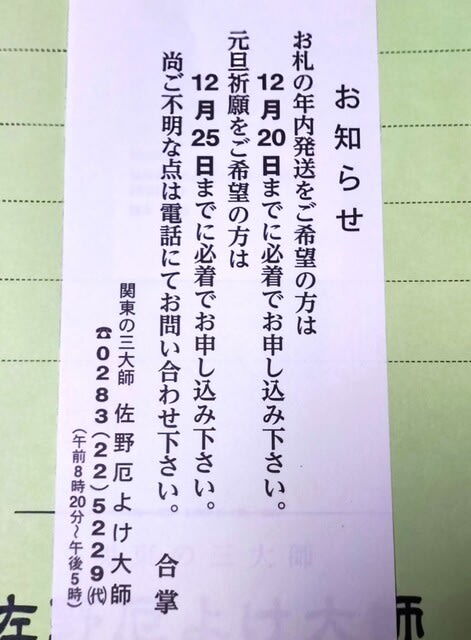 お知らせ
お札の年内発送をご希望の方は
12月20日までに必着でお申し込み下さい。
元旦祈願をご希望の方は
12月25日までに必着でお申し込み下さい。
尚ご不明な点は電話にてお問い合わせ下さい。
合掌
関東の三大師 佐野厄よけ大師
☎0283(22)5229㈹
(午前8時20分〜午後5時)
の三大師
佐野厄よけ大師